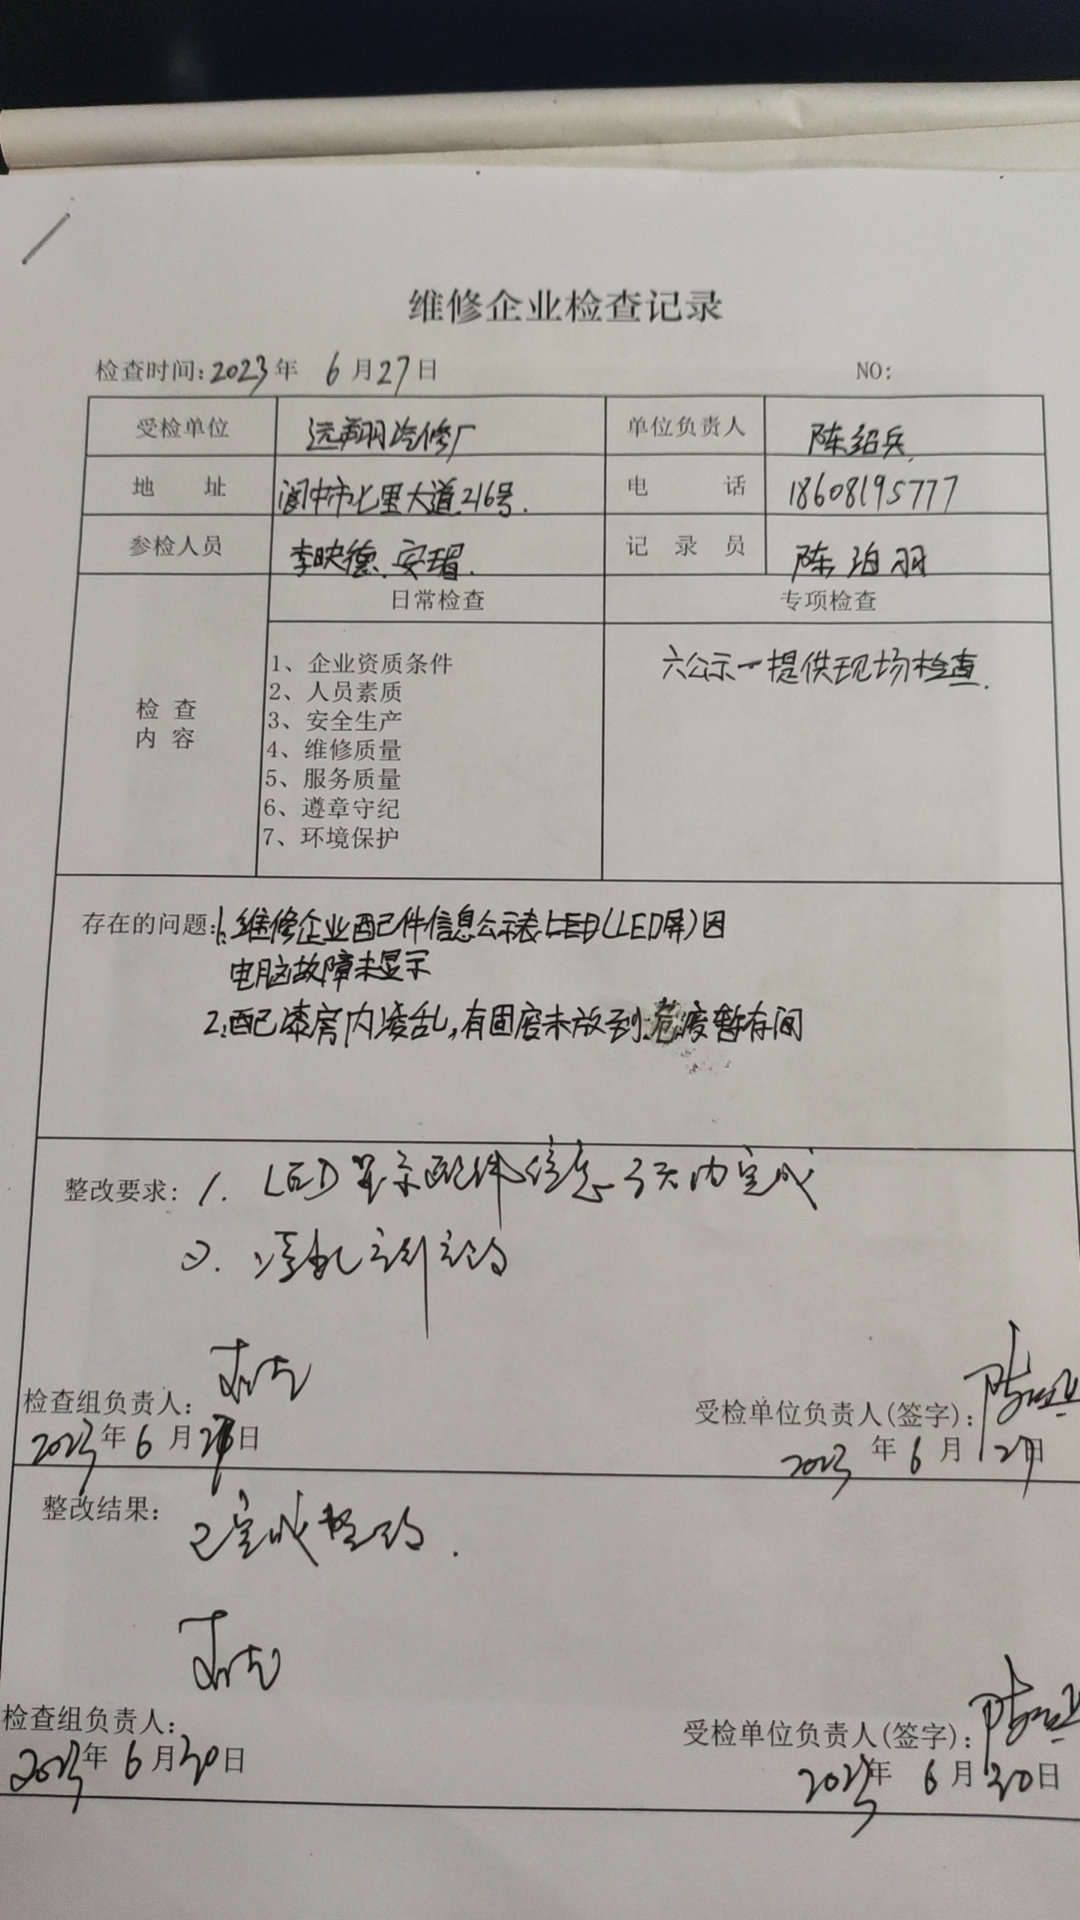 维修企业检查记录
检查时间:2023年 6月27日 NO:
受检单位 远翔汽修厂 单位负责人 陈绍兵
地 址 阆中市七里大道216号. 电 话 18608195777
参检人员 李映德、安瑁. 记 录 员 陈泊羽
检查内容 日常检查 专项检查
1、企业资质条件 六公示一提供现场检查.
2、人员素质
3、安全生产
4、维修质量
5、服务质量
6、遵章守纪
7、环境保护
存在的问题:1.维修企业配件信息公示表LED(LED屏)因
电脑故障未显示
2.配漆房内凌乱,有固废未放到危废暂存间
整改要求: 1. LED显示配件信息3天内完成
2. 凌乱立即立改
检查组负责人:
2023年6月27日
受检单位负责人(签字):
2023年6月27日
整改结果: 已完成整改.
检查组负责人:
2023年6月30日
受检单位负责人(签字):
2023年6月30日